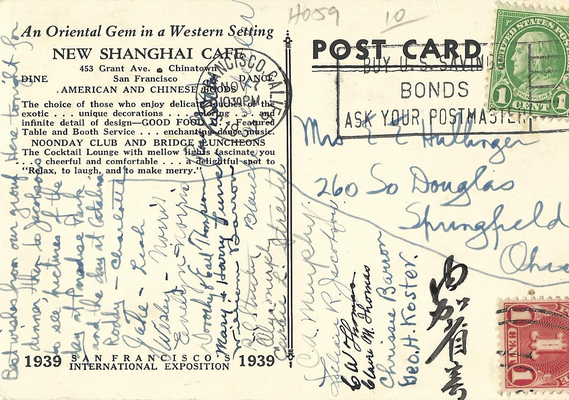 H059
10
An Oriental Gem in a Western Setting
NEW SHANGHAI CAFE
453 Grant Ave. Chinatown
DINE San Francisco DANCE
AMERICAN AND CHINESE FOODS
The choice of those who enjoy delicate
exotic . . . unique decorations . . . coloring . . . and
infinite detail of design—GOOD FOOD . . . Featured
Table and Booth Service . . . enchanting dance music.
NOONDAY CLUB AND BRIDGE LUNCHEONS
The Cocktail Lounge with mellow lights fascinate you
. . . cheerful and comfortable . . . a delightful spot to
"Relax, to laugh, and to make merry."
1939 SAN FRANCISCO'S 1939
INTERNATIONAL EXPOSITION
POST CARD
SAN FRANCISCO CALIF.
NOV
1030PM
BUY U.S. SAVINGS
BONDS
ASK YOUR POSTMASTER
UNITED STATES POSTAGE
1 CENT 1
Mrs E E Hullinger
260 So Douglas
Springfield
Ohio
Best wishes from our group. Here tonight for
dinner, then to Jacksons
to see pictures of the
day at Paradise Park
and the day at Catalina
Roddy - Charlotte
Kate - Leah
Wesley Norris
Evelyn Norris
Dorothy & Earl Thompson
Mary & Harry Pierce
William Barron
C.A. Murphy
Felice R. Jacobson
C W Thomas
Claire M. Thomas
Chrissie Barron
Geo. H. Koster.
CENT 1 CENT